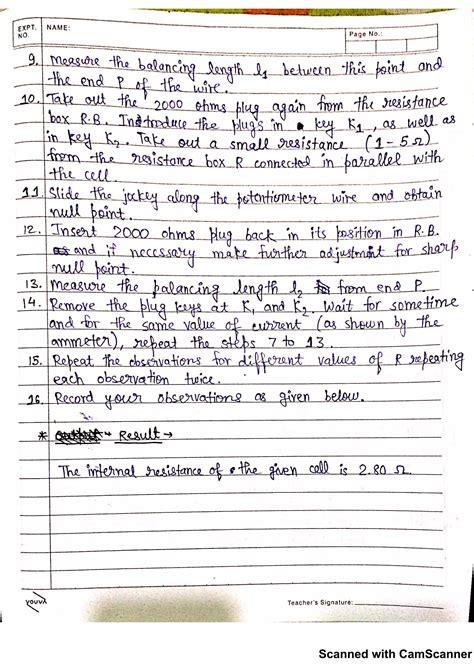 EXPT. NO.
NAME:
Page No.:
9. Measure the balancing length l1 between this point and
the end P of the wire.
10. Take out the 2000 ohms plug again from the resistance
box R.B. Introduce the plugs in key K1, as well as
in key K2. Take out a small resistance (1-5Ω)
from the resistance box R connected in parallel with
the cell.
11. Slide the jockey along the potentiometer wire and obtain
null point.
12. Insert 2000 ohms plug back in its position in R.B.
and if necessary make further adjustment for sharp
null point.
13. Measure the balancing length l2 from end P.
14. Remove the plug keys at K1 and K2. Wait for sometime
and for the same value of current (as shown by the
ammeter), repeat the steps 7 to 13.
15. Repeat the observations for different values of R repeating
each observation twice.
16. Record your observations as given below.
* Result →
The internal resistance of the given cell is 2.80 Ω.
youva
Teacher's Signature:
Scanned with CamScanner